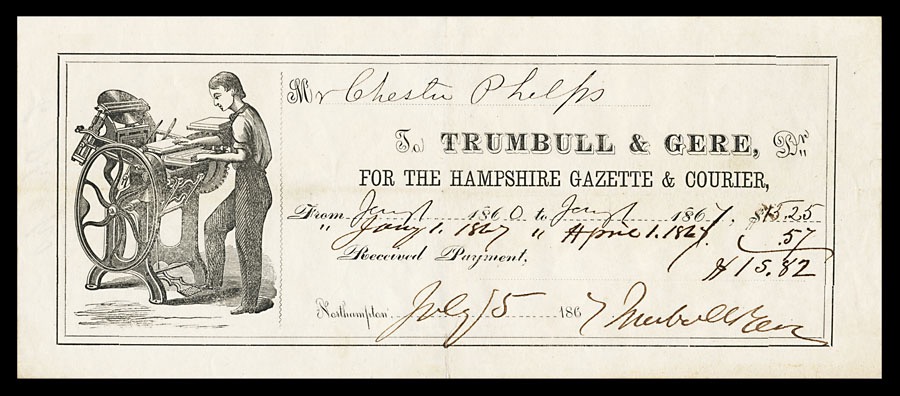 Mr Chester Phelps
To TRUMBULL & GERE, Dr.
FOR THE HAMPSHIRE GAZETTE & COURIER,
From Jany 1 1860 to Jany 1 1867, $15.25
" Jany 1. 1867 " April 1. 1867. .57
Received Payment, $15.82
Northampton July 15 1867 Trumbull & Gere